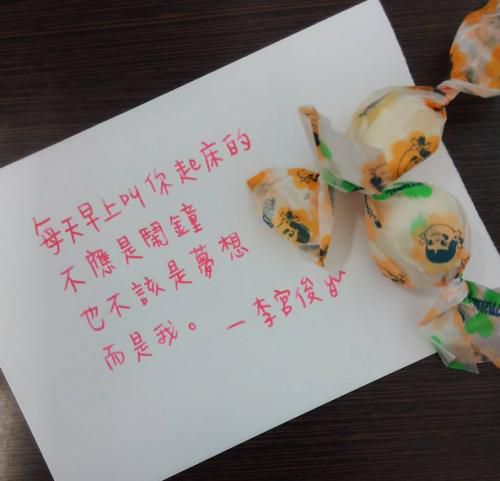 每天早上叫你起床的
不應是鬧鐘
也不該是夢想
而是我。 — 李宮俊